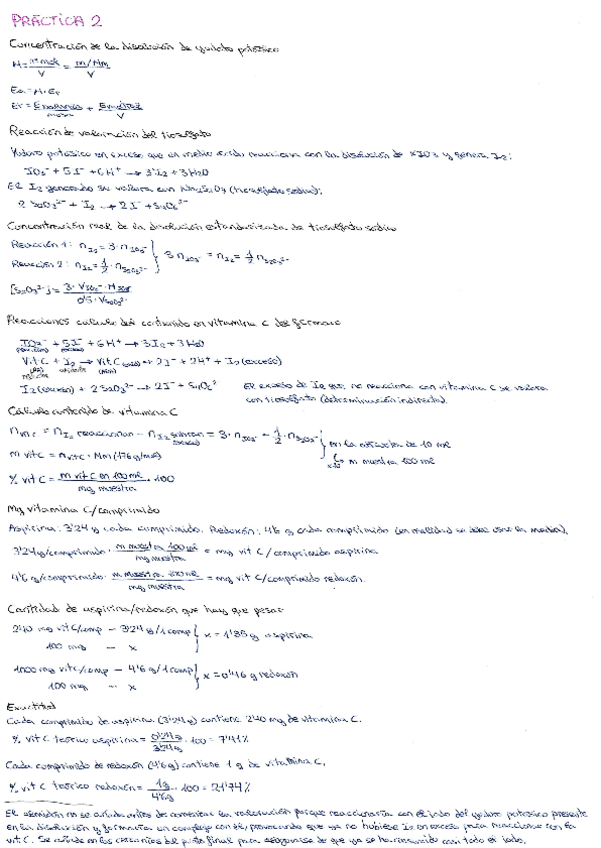 PRÁCTICA 2
Concentración de la disolución de yodato potásico
M = nº mol / V = m/Mm / V
Ea = M · Er
Er = Ebalanza / masa + Ematraz / V
Reacción de valoración del tiosulfato
Yoduro potásico en exceso que en medio ácido reacciona con la disolución de KIO3 y genera I2:
IO3⁻ + 5I⁻ + 6H⁺ → 3I2 + 3H2O
El I2 generado se valora con Na2S2O3 (tiosulfato sódico):
2 S2O3²⁻ + I2 → 2I⁻ + S4O6²⁻
Concentración real de la disolución estandarizada de tiosulfato sódico
Reacción 1: nI2 = 3 · nIO3⁻
Reacción 2: nI2 = 1/2 · nS2O3²⁻ } 3 nIO3⁻ = nI2 = 1/2 nS2O3²⁻
[S2O3²⁻] = 3 · VIO3⁻ · MIO3⁻ / 0'5 · VS2O3²⁻
Reacciones cálculo del contenido en vitamina C del fármaco
IO3⁻ + 5I⁻ + 6H⁺ → 3I2 + 3H2O
(exceso)
Vit C + I2 → Vit C (oxid) + 2I⁻ + 2H⁺ + I2 (exceso)
I2 (exceso) + 2 S2O3²⁻ → 2I⁻ + S4O6²⁻ El exceso de I2 que no reacciona con vitamina C se valora
con tiosulfato (determinación indirecta).
Cálculo contenido de vitamina C
nvit C = nI2 reaccionan - nI2 sobran = 3 · nIO3⁻ - 1/2 · nS2O3²⁻ } en la alícuota de 10 ml
(exceso)
m vit C = nvit C · Mm (176 g/mol) x10 m muestra 100 ml
% vit C = m vit C en 100 ml / mg muestra · 100
Mg vitamina C/comprimido
Aspirina: 3'24 g cada comprimido. Redoxón: 4'6 g cada comprimido (en realidad se debe usar la media).
3'24 g/comprimido · m muestra 100 ml / mg muestra = mg vit C / comprimido aspirina
4'6 g/comprimido · m muestra 100 ml / mg muestra = mg vit C/comprimido redoxón
Cantidad de aspirina/redoxón que hay que pesar
240 mg vit C/comp – 3'24 g/1 comp
100 mg – x } x = 1'35 g aspirina
1000 mg vit C/comp – 4'6 g/1 comp
100 mg – x } x = 0'46 g redoxón
Exactitud
Cada comprimido de aspirina (3'24 g) contiene 240 mg de vitamina C.
% vit C teórico aspirina = 0'24 g / 3'24 g · 100 = 7'41%
Cada comprimido de redoxón (4'6 g) contiene 1 g de vitamina C.
% vit C teórico redoxón = 1 g / 4'6 g · 100 = 21'74%
El almidón no se añade antes de comenzar la valoración porque reaccionaría con el iodo del yodato potásico presente
en la disolución y formaría un complejo con él, provocando que ya no hubiese I2 en exceso para reaccionar con la
vit C. Se añade en las cercanías del punto final para asegurarse de que ya se ha consumido casi todo el iodo.